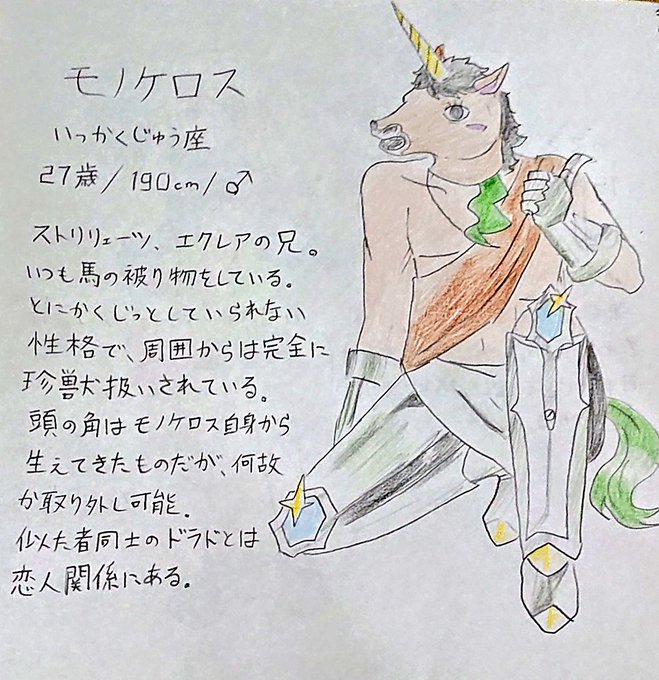 モノケロス
いっかくじゅう座
27歳/190cm/♂
ストリリェーツ、エクレアの兄。
いつも馬の被り物をしている。
とにかくじっとしていられない
性格で、周囲からは完全に
珍獣扱いされている。
頭の角はモノケロス自身から
生えてきたものだが、何故
か取り外し可能。
似た者同士のドラドとは
恋人関係にある。